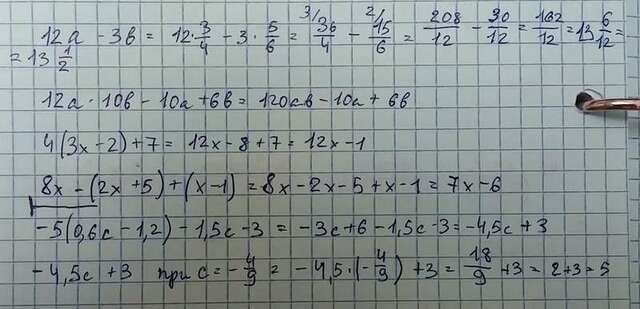 12a - 3b = 12·3/4 - 3·5/6 = 3/ 36/4 - 2/ 15/6 = 208/12 - 30/12 = 162/12 = 13 6/12 =
= 13 1/2
12a · 10b - 10a + 6b = 120ab - 10a + 6b
4(3x - 2) + 7 = 12x - 8 + 7 = 12x - 1
8x - (2x + 5) + (x - 1) = 8x - 2x - 5 + x - 1 = 7x - 6
-5(0,6c - 1,2) - 1,5c - 3 = -3c + 6 - 1,5c - 3 = -4,5c + 3
-4,5c + 3 при c = -4/9 = -4,5·(-4/9) + 3 = 18/9 + 3 = 2 + 3 = 5